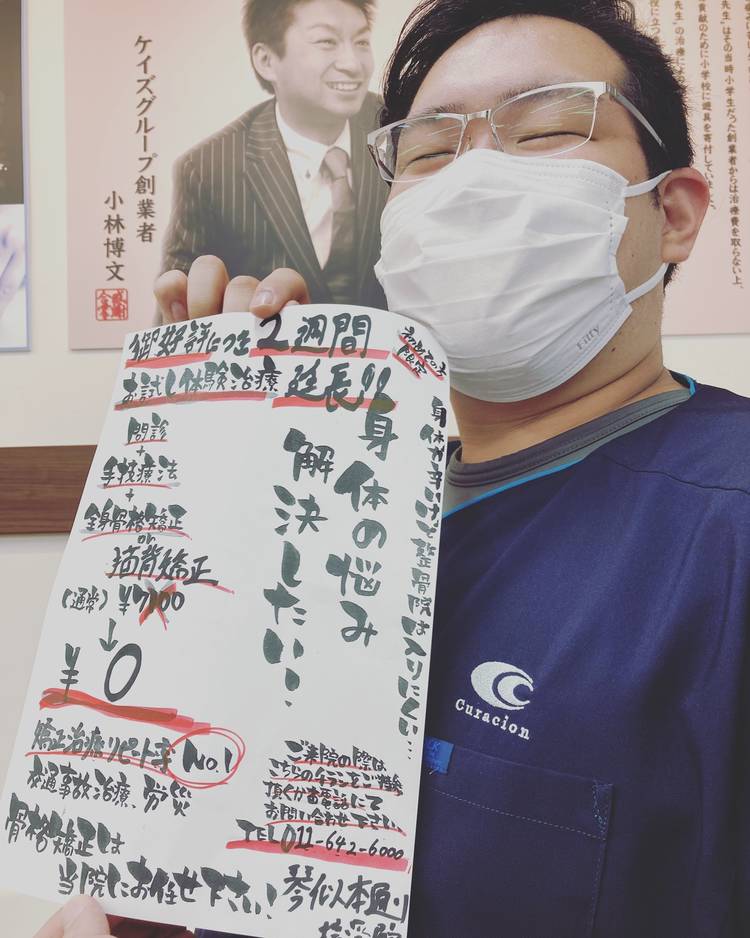 ケイズグループ創業者
小林博文
先生"はその当時小学生だった創業者からは治療費を取らない上、
貢献のために小学校に遊具を寄付していま
先生"の治療に
Fitty
Curacion
御好評につき2週間
お試し体験治療 延長!!
初めての方
限定
身体が辛いけど整骨院は入りにくい…
身体の悩み
解決したい!
問診
+
手技療法
+
全身骨格矯正
or
猫背矯正
(通常)¥7,100
↓
¥0
矯正治療リピート率 No.1
交通事故治療、労災
骨格矯正は
当院にお任せ下さい!
ご来院の際は
こちらのチラシをご持参
頂くかお電話にて
お問い合わせ下さい
TEL011-642-6000
琴似本通り